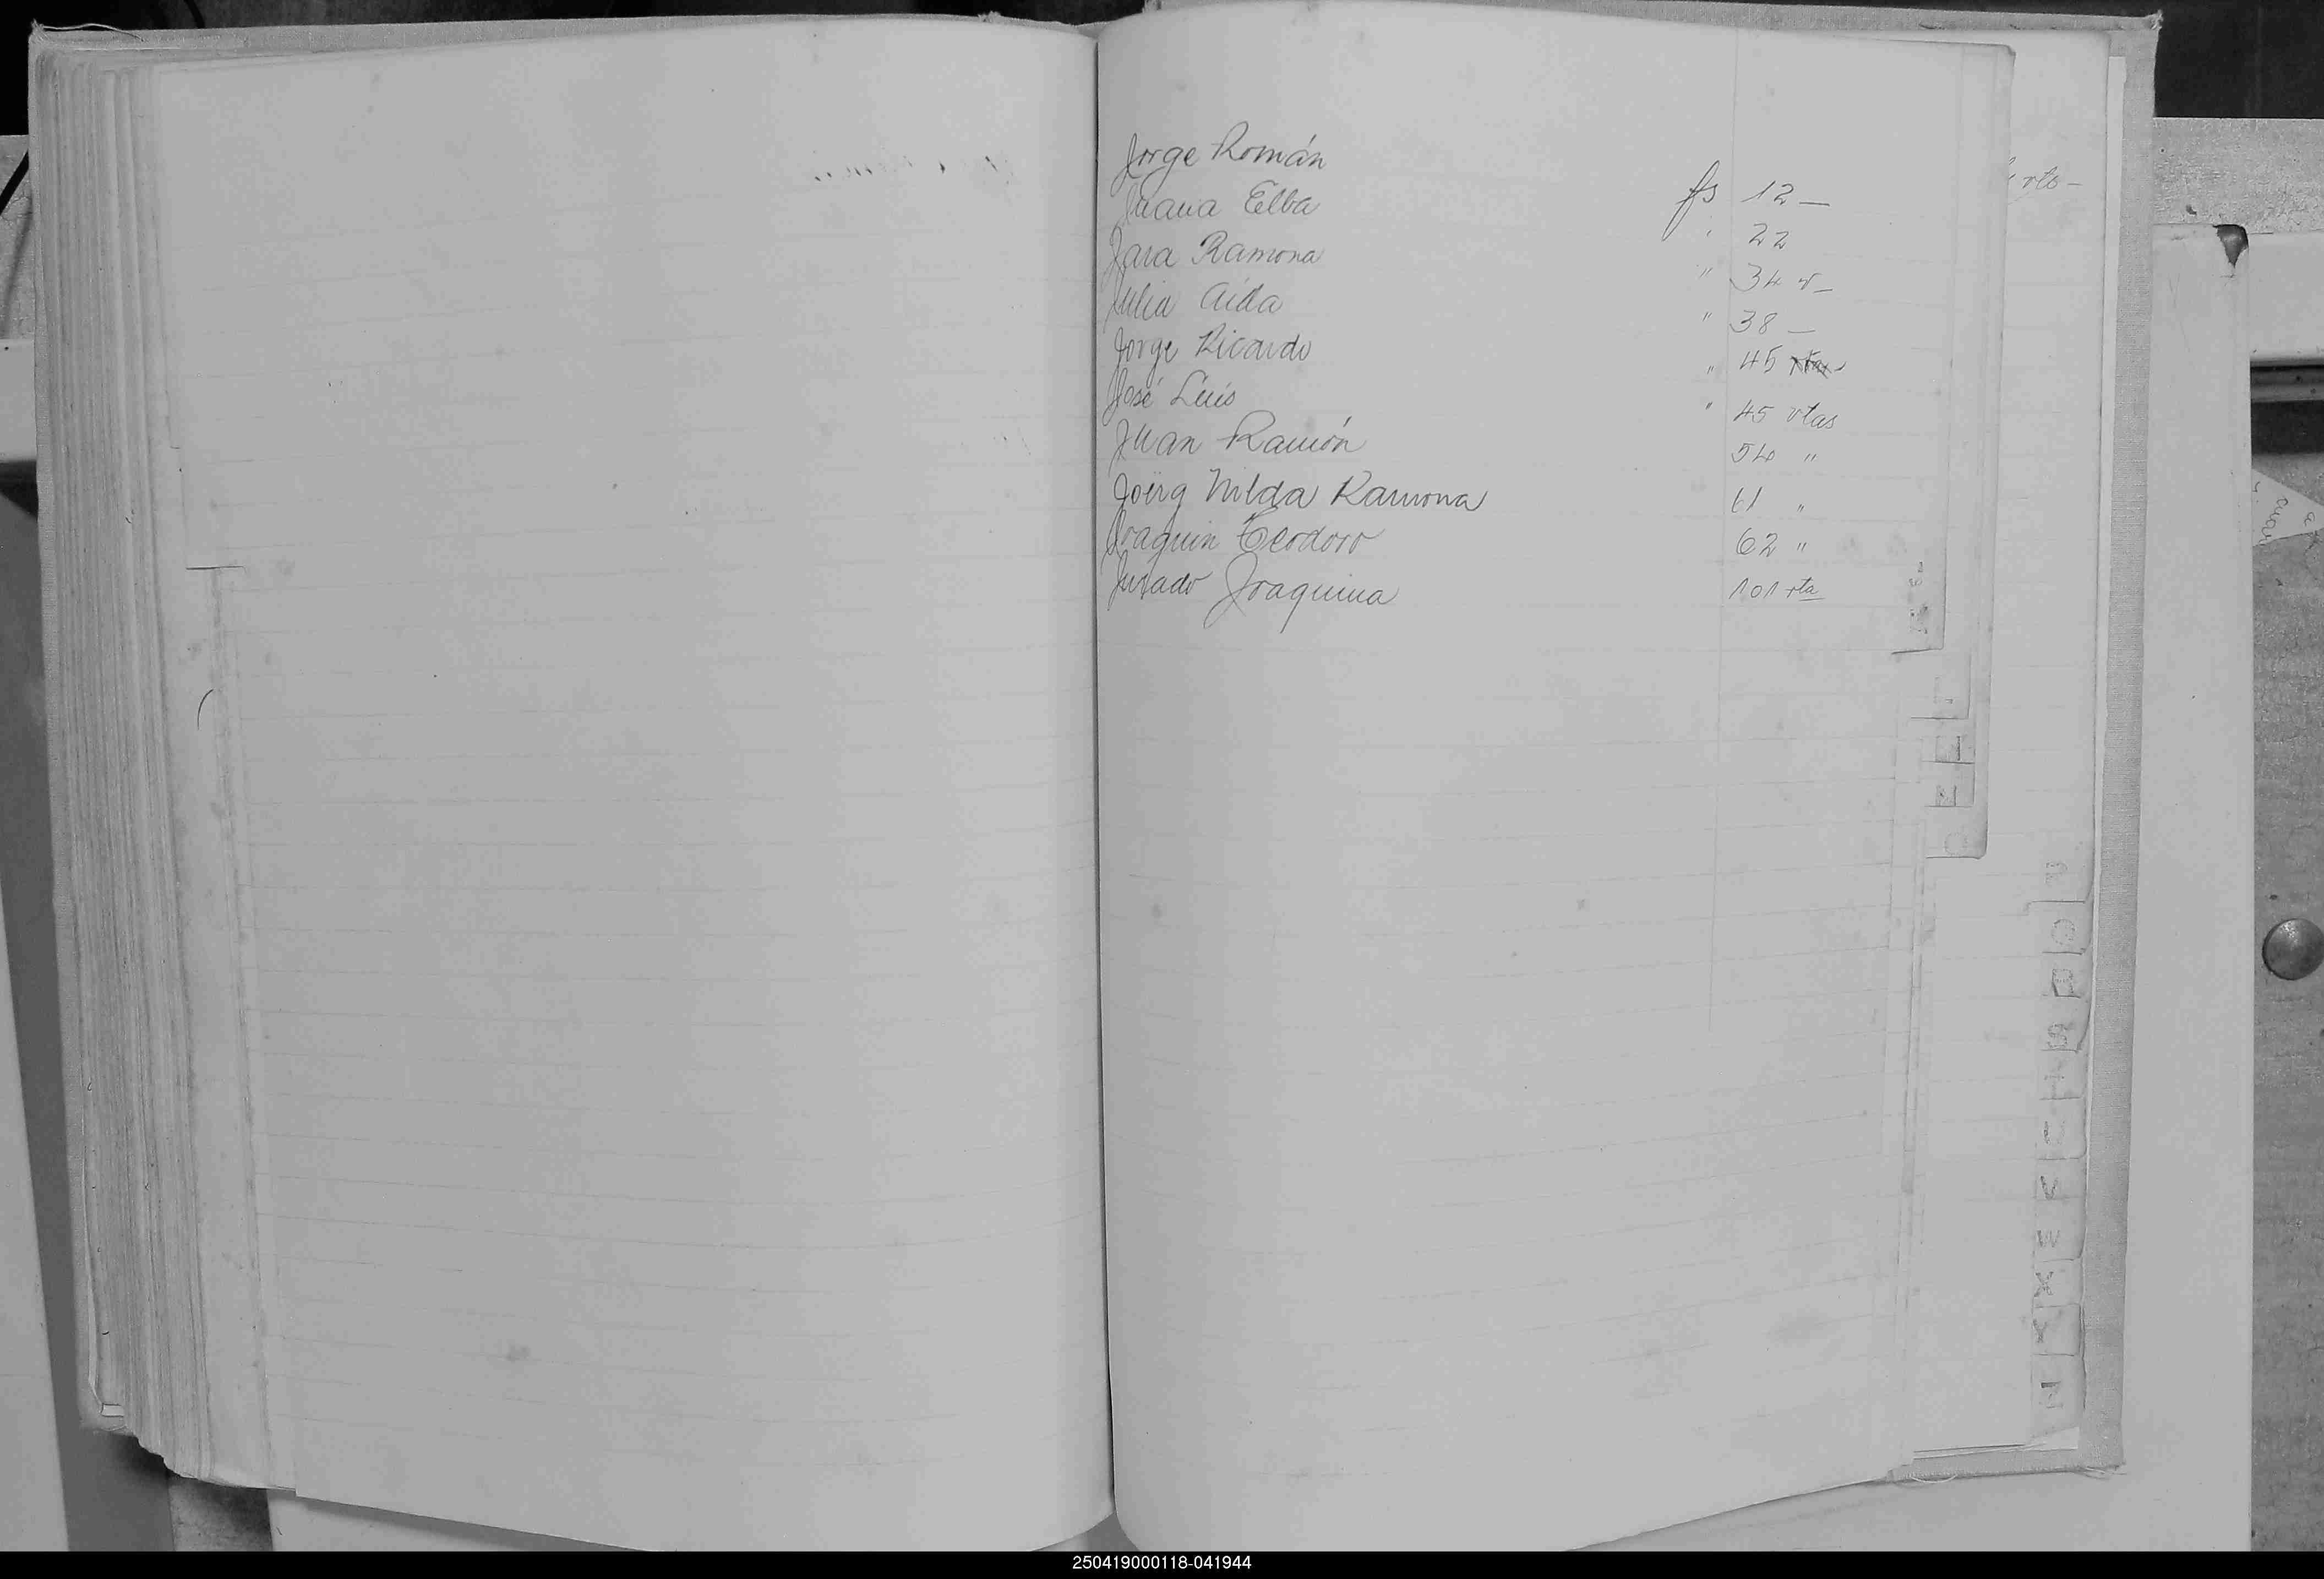 Jorge Román fs 12 —
Juana Elba " 22
Jara Ramona " 34 v —
Julia Aida " 38 —
Jorge Ricardo " 45
José Luis " 45 vtas
Juan Ramón 54 "
Nilda Ramona 61 "
Joaquin Teodoro 62 "
Jurado Joaquina 101 vta
P
Q
R
S
T
U
V
W
X
Y
Z
250419000118-041944